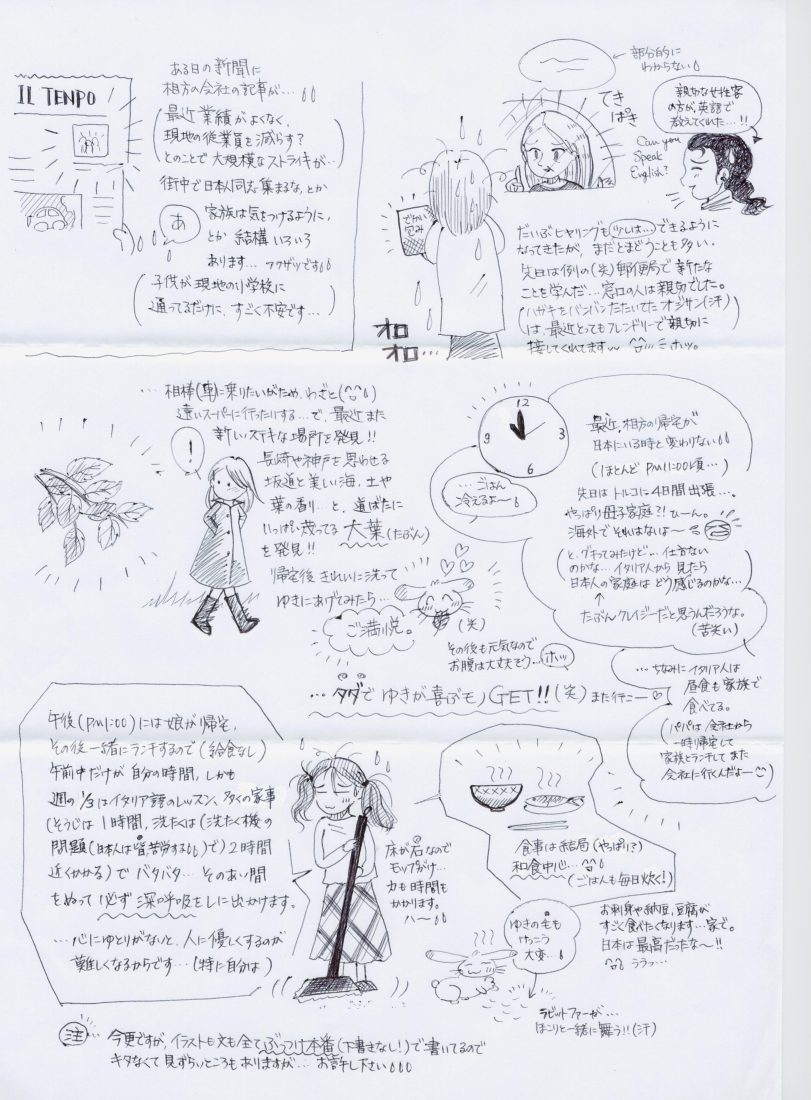 ある日の新聞に
相方の会社の記事が…
IL TENPO
(最近業績がよくなく、
現地の従業員を減らす?
とのことで大規模なストライキが…)
街中で日本人同志集まるな、とか
あ
家族は気をつけるように、
とか結構いろいろ
あります…フクザツです
(子供が現地の小学校に
通ってるだけに、すごく不安です…)
部分的に
わからない
てき
ぱき
親切な女性客
の方が、英語で
教えてくれた…!!
Can you
Speak
English?
でかい
包み
オロ
オロ…
だいぶヒヤリングも少しは…できるように
なってきたが、まだとまどうことも多い.
先日は例の(笑)郵便局で新たな
ことを学んだ…窓口の人は親切でした。
(ハガキをバンバンたたいてたオジサン(汗)
は、最近とってもフレンドリーで親切に
接してくれてます 〜 ホッ。
…相棒(車)に乗りたいがため、わざと(^^)
遠いスーパーに行ったりする…で、最近また
新しいステキな場所を発見!!
!
長崎や神戸を思わせる
坂道と美しい海、土や
葉の香り…と、道ばたに
いっぱい茂ってる大葉(たぶん)
を発見!!
帰宅後きれいに洗って
ゆきにあげてみたら…
ご満悦。
(笑)
その後も元気なので
お腹は大丈夫そう…ホッ
…タダでゆきが喜ぶモノGET!!(笑)また行こー♡
12
3
6
9
…ごはん
冷えるよ〜
最近、相方の帰宅が
日本にいる時と変わりない
(ほとんどPm11:00頃…)
先日はトルコに4日間出張…。
やっぱり母子家庭?!ひーん。
海外でそれはないよ〜
(と、グチってみたけど…仕方ない
のかな…イタリア人から見たら
日本人の家庭はどう感じるのかな…)
↑
たぶんクレイジーだと思うんだろうな。
(苦笑い)
…ちなみにイタリア人は
昼食も家族で
食べてる。
(パパは会社から
一時帰宅して
家族とランチしてまた
会社に行くんだよー)
午後(Pm1:00)には娘が帰宅、
その後一緒にランチするので(給食なし)
午前中だけが自分の時間、しかも
週の1/3はイタリア語のレッスン、多くの家事
(そうじは1時間、洗たくは(洗たく機の
問題(日本人は皆、苦労する)で)2時間
近くかかる)でバタバタ…そのあい間
をぬって必ず深呼吸をしに出かけます。
…心にゆとりがないと、人に優しくするのが
難しくなるからです…(特に自分は)
床が石なので
モップがけ…
力も時間も
かかります。
ハ〜
食事は結局(やっぱり?)
和食中心…^^
(ごはんも毎日炊く!)
お刺身や納豆、豆腐が
すごく食べたくなります…家で。
日本は最高だったな〜!!
ララっ…
ゆきの毛も
けっこう
大変…
ラビットファーが…
ほこりと一緒に舞う!!(汗)
注… 今更ですが、イラストも文も全てぶっつけ本番(下書きなし!)で書いてるので
キタなくて見ずらいところもありますが…お許し下さい